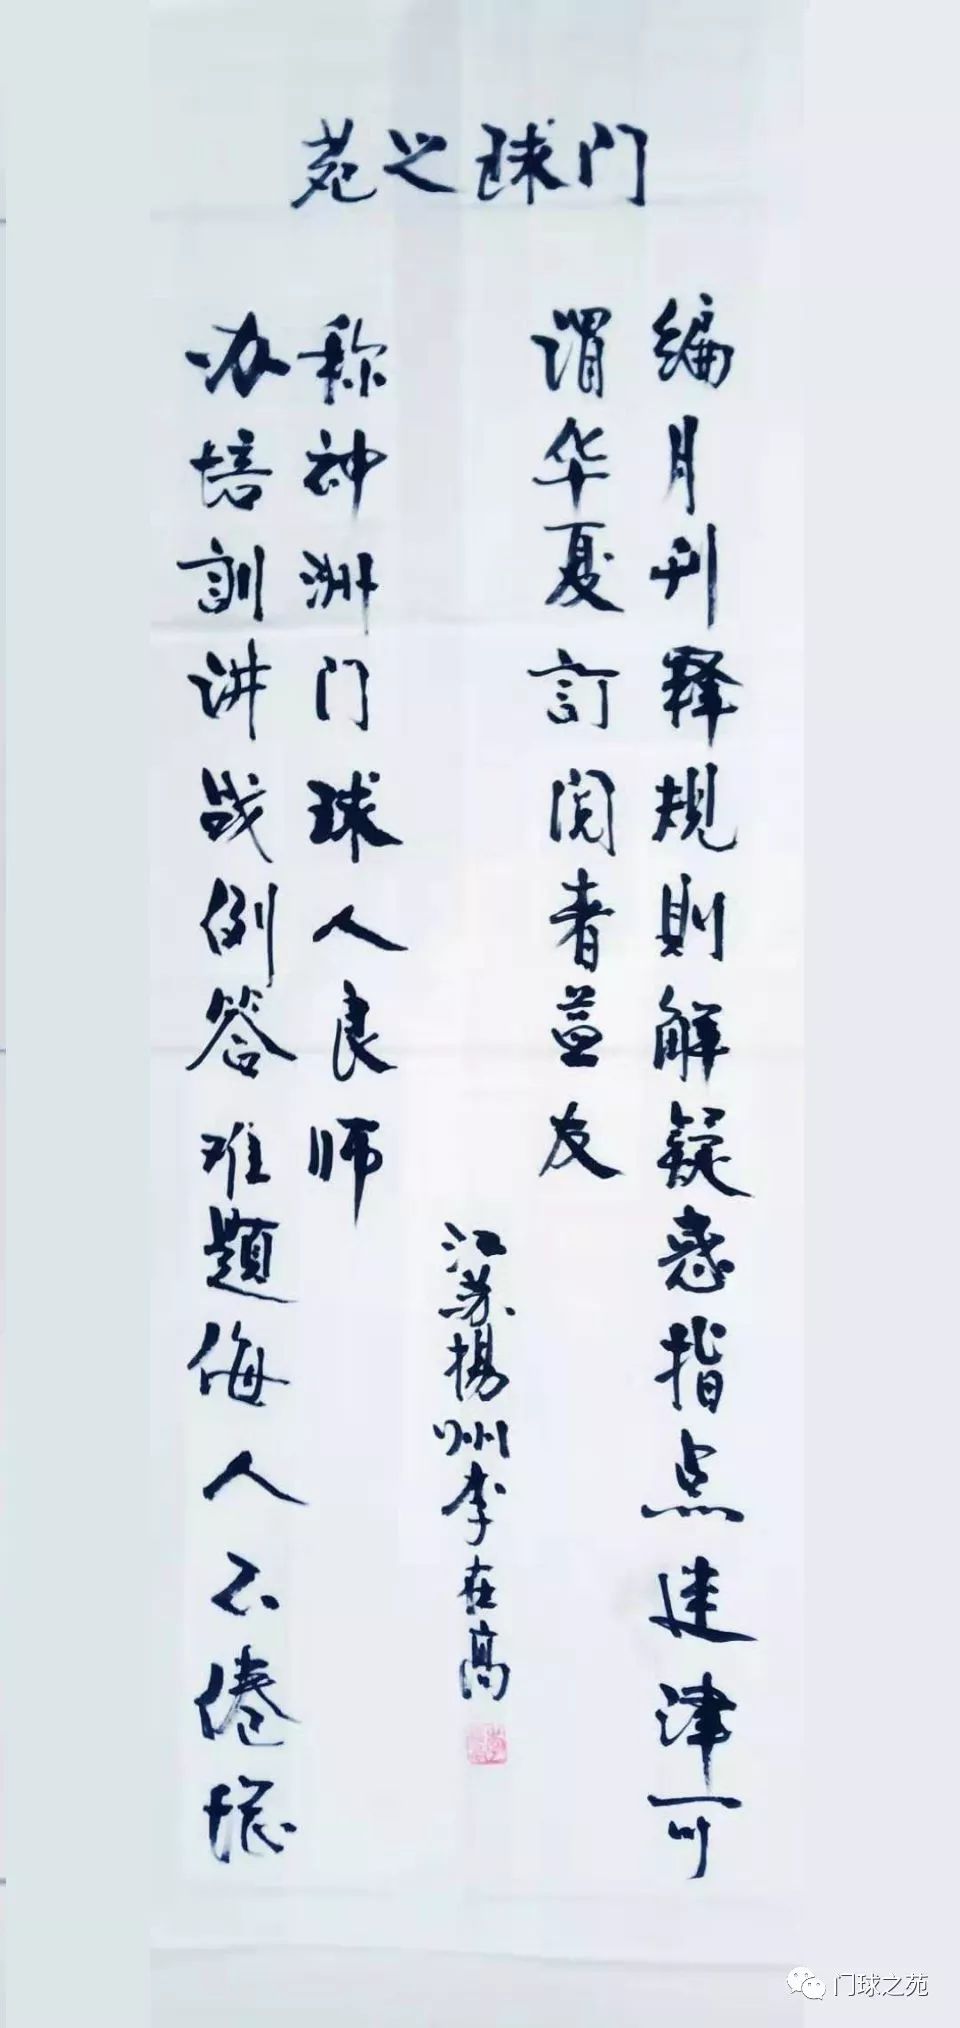 门球之苑
编月刊释规則解疑惑指点迷津可
谓华夏訂阅者益友
办培訓讲战例答难題侮人不倦堪
称神洲门球人良师
江苏揚州李在高
门球之苑